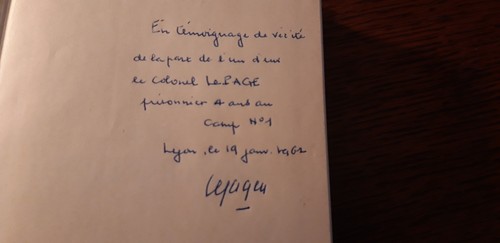 En témoignage de vérité
de la part de l'un d'eux
le Colonel LePAGE
prisonnier 4 ans au
Camp N°1
Lyon, le 19 janv. 1962
Lepage